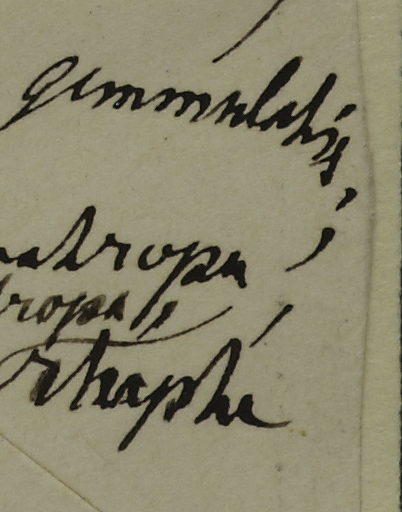 gemmulatis,
atropa
tropa,
rhaphe